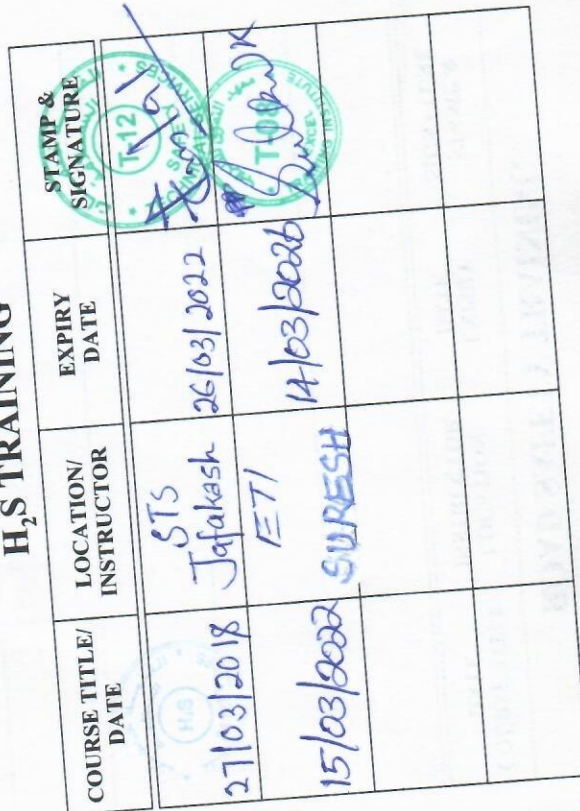 H₂S TRAINING
COURSE TITLE/
DATE
LOCATION/
INSTRUCTOR
EXPIRY
DATE
STAMP &
SIGNATURE
27/03/2018
STS
Jafakash
26/03/2022
T-12
H₂S
15/03/2022
ETI
SURESH
14/03/2026
INSTITUTE